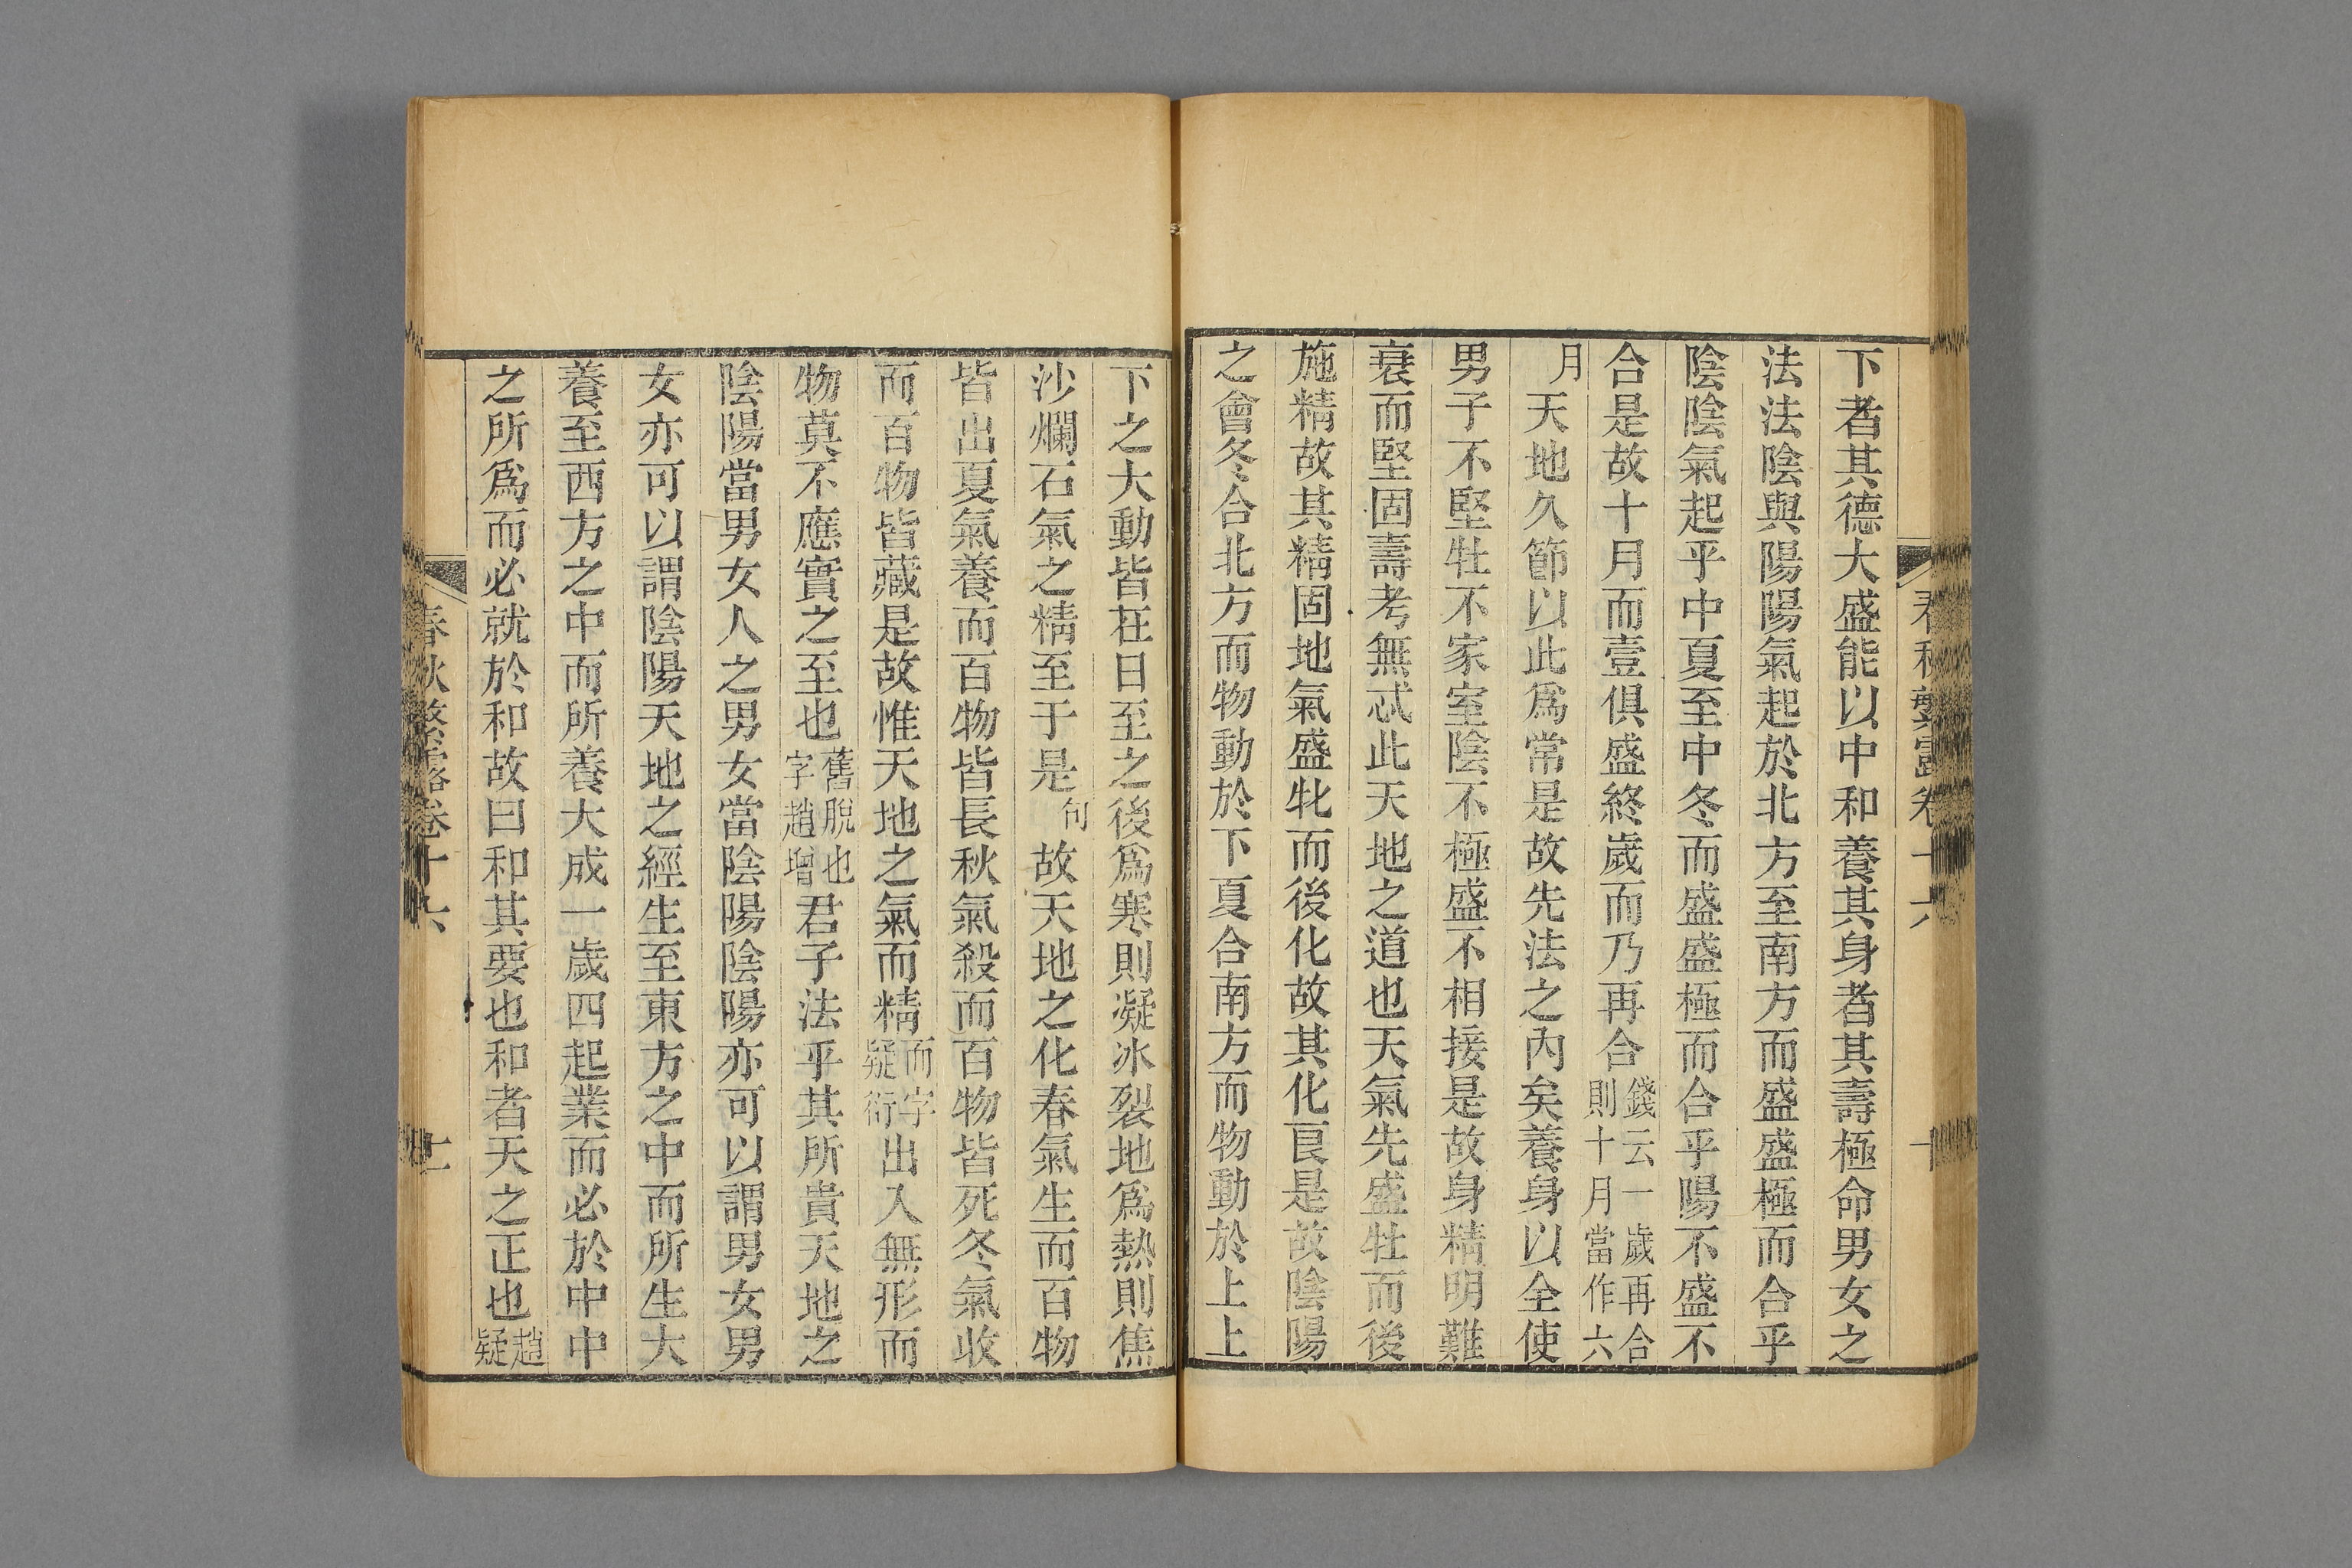 春秋繁露卷十六 十
下者其德大盛能以中和養其身者其壽極命男女之
法法陰與陽陽氣起於北方至南方而盛盛極而合乎
陰陰氣起乎中夏至中冬而盛盛極而合乎陽不盛不
合是故十月而壹俱盛終歲而乃再合錢云一歲再合則十月當作六
月天地久節以此爲常是故先法之內矣養身以全使
男子不堅牡不家室陰不極盛不相接是故身精明難
衰而堅固壽考無忒此天地之道也天氣先盛牡而後
施精故其精固地氣盛牝而後化故其化良是故陰陽
之會冬合北方而物動於下夏合南方而物動於上上
下之大動皆在日至之後爲寒則凝冰裂地爲熱則焦
沙爛石氣之精至于是句故天地之化春氣生而百物
皆出夏氣養而百物皆長秋氣殺而百物皆死冬氣收
而百物皆藏是故惟天地之氣而精而字疑衍出入無形而
物莫不應實之至也舊脫也字趙增君子法乎其所貴天地之
陰陽當男女人之男女當陰陽陰陽亦可以謂男女男
女亦可以謂陰陽天地之經生至東方之中而所生大
養至西方之中而所養大成一歲四起業而必於中中
之所爲而必就於和故曰和其要也和者天之正也趙疑
春秋繁露卷十六 十一